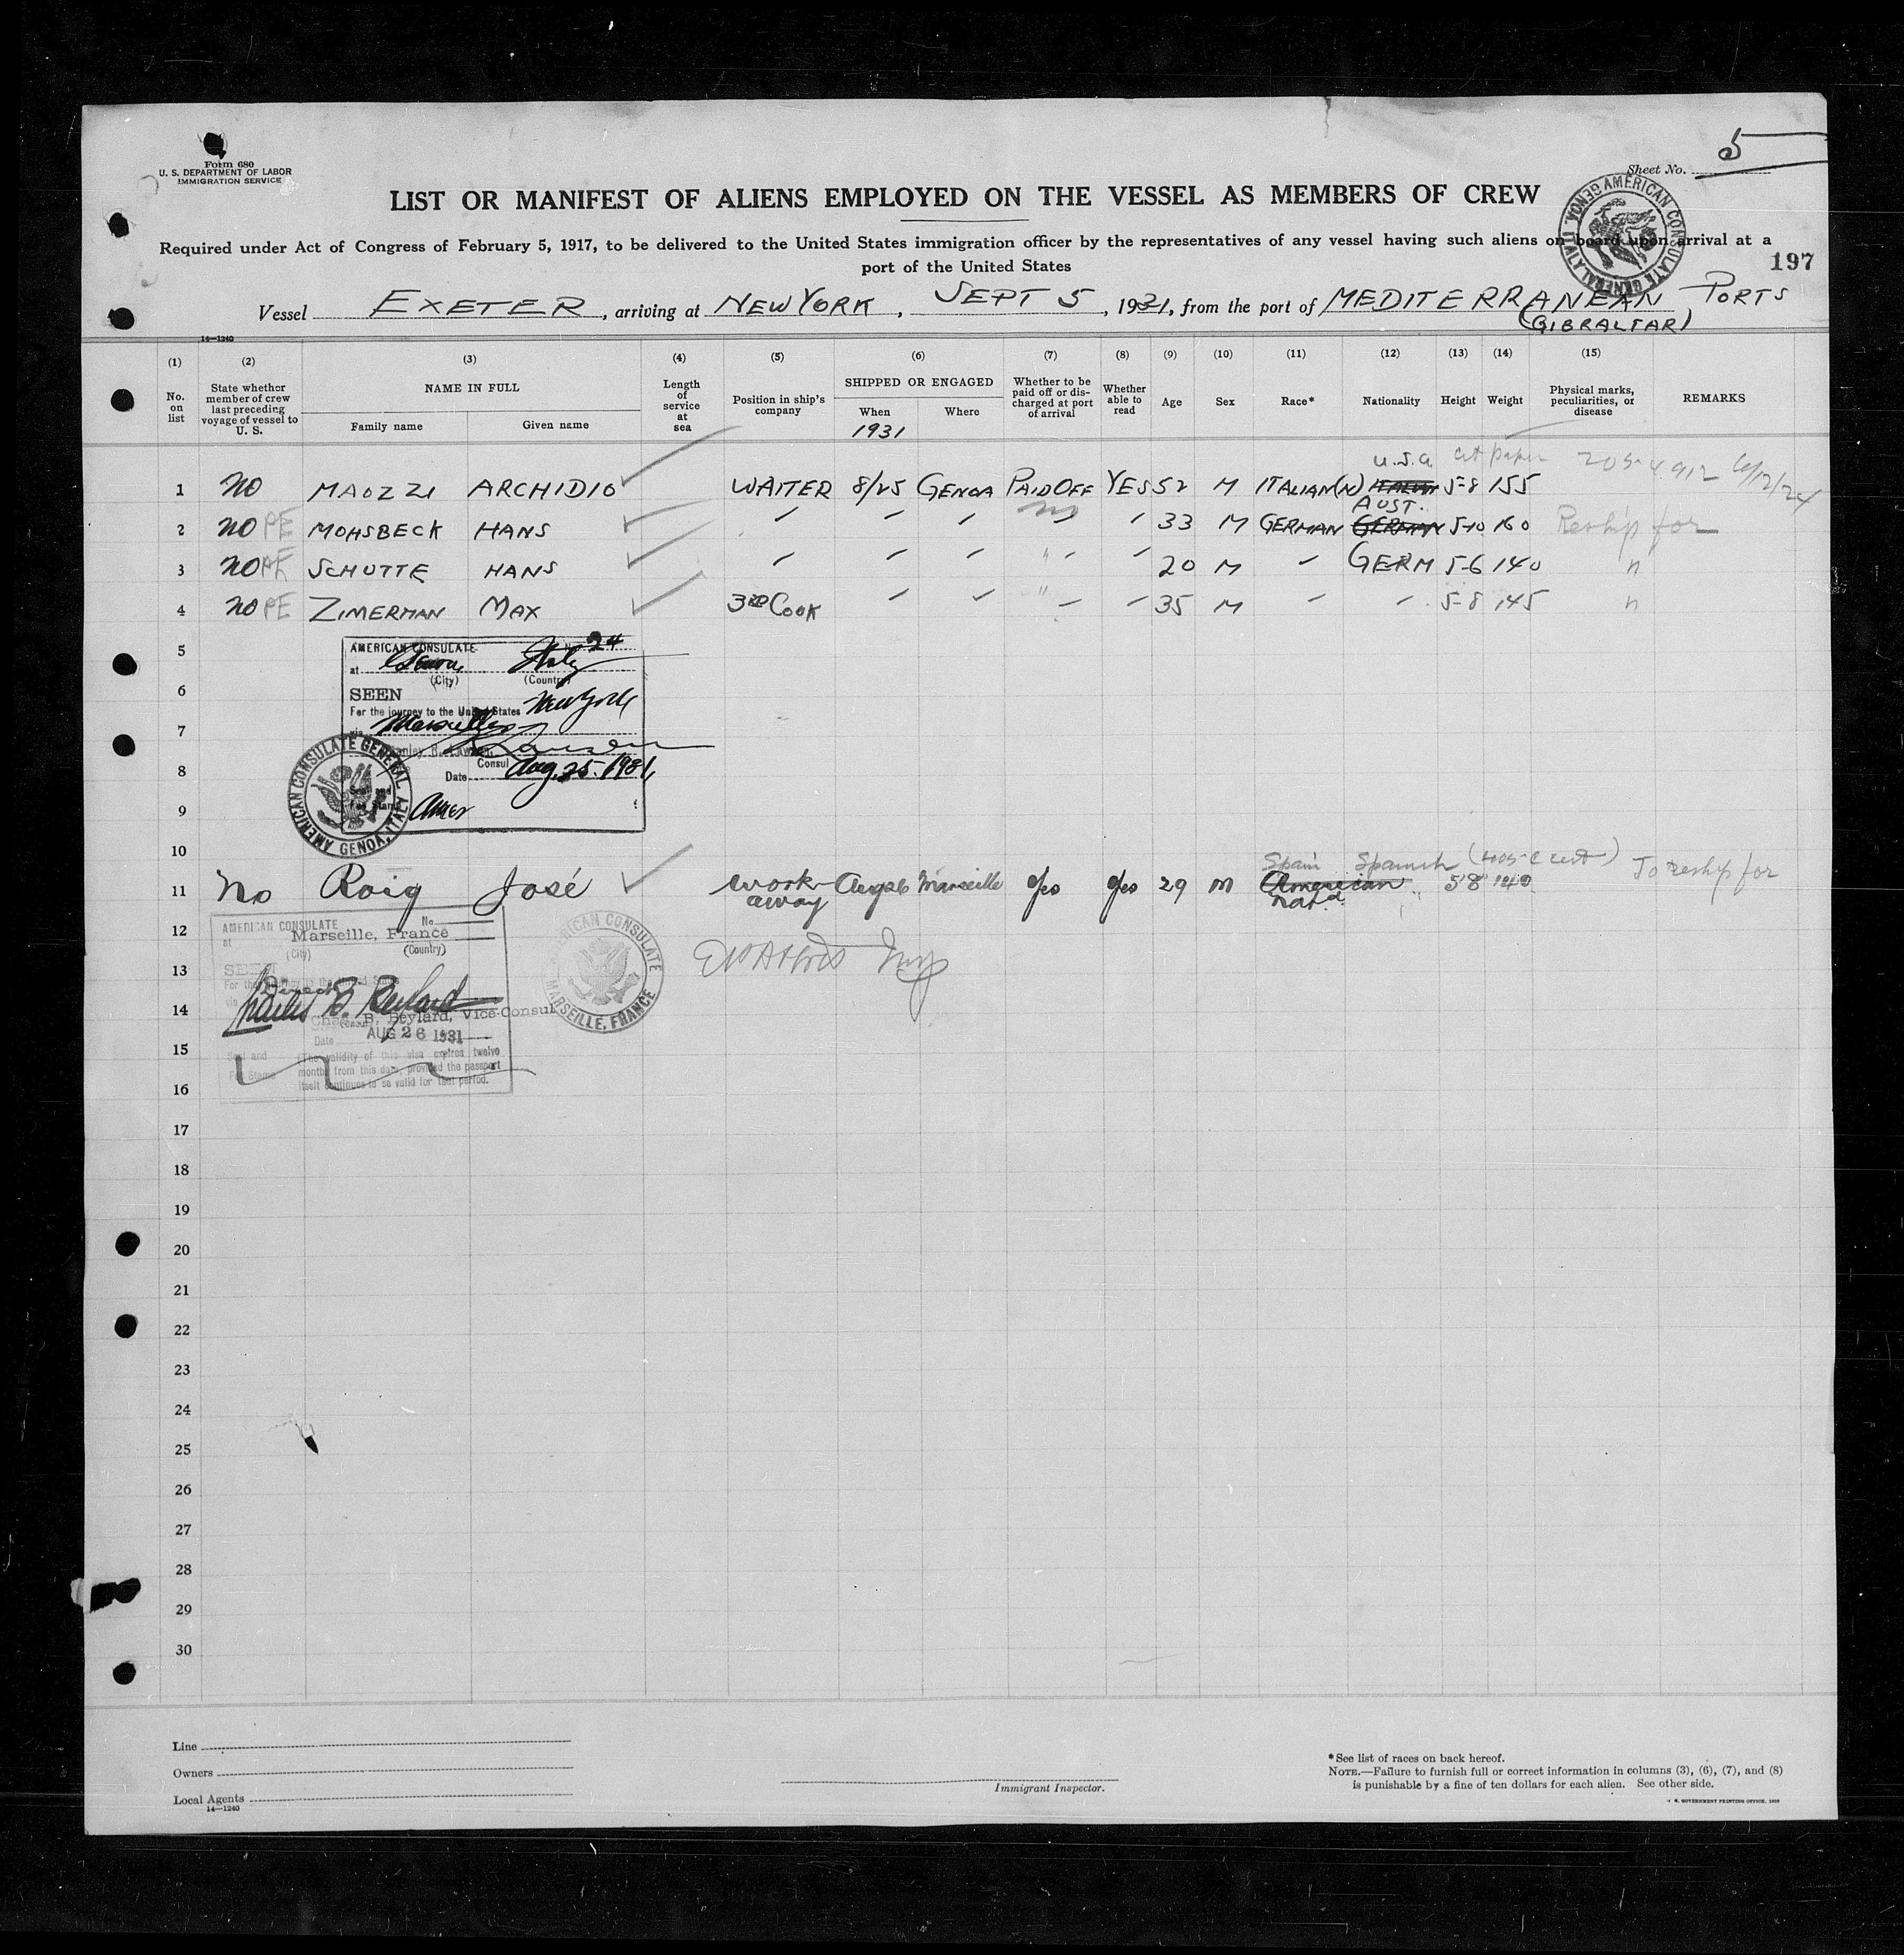 Form 680
U. S. DEPARTMENT OF LABOR
IMMIGRATION SERVICE
Sheet No. 5
LIST OR MANIFEST OF ALIENS EMPLOYED ON THE VESSEL AS MEMBERS OF CREW
AMERICAN CONSULATE GENERAL GENOA, ITALY
Required under Act of Congress of February 5, 1917, to be delivered to the United States immigration officer by the representatives of any vessel having such aliens on board upon arrival at a
port of the United States
197
Vessel EXETER, arriving at NEW YORK, SEPT 5, 1931, from the port of MEDITERRANEAN PORTS
(GIBRALTAR)
14—1240
(1) (2) (3) (4) (5) (6) (7) (8) (9) (10) (11) (12) (13) (14) (15)
No. on list
State whether member of crew last preceding voyage of vessel to U. S.
NAME IN FULL
Family name
Given name
Length of service at sea
Position in ship's company
SHIPPED OR ENGAGED
When
Where
1931
Whether to be paid off or discharged at port of arrival
Whether able to read
Age
Sex
Race*
Nationality
Height
Weight
Physical marks, peculiarities, or disease
REMARKS
U.S.A. cit paper 6/12/24
1 NO MAOZZI ARCHIDIO WAITER 8/25 GENOA PAID OFF YES 52 M ITALIAN(N) 5-8 155
AUST.
2 NO PE MOHSBECK HANS " " " no " 33 M GERMAN GERMAN 5-10 160 Reship for
3 NO PE SCHUTTE HANS " " " " " 20 M " GERM 5-6 140 "
4 NO PE ZIMERMAN MAX 3RD COOK " " " " 35 M " " 5-8 145 "
5
AMERICAN CONSULATE No. 24
at Genoa, Italy
(City) (Country)
6
SEEN
For the journey to the United States New York
7
via Marseilles
8
Consul
Date Aug. 25. 1931.
Seal and
Fee Stamp
9
AMERICAN CONSULATE GENERAL GENOA, ITALY
10
Spain Spanish To reship for
11 No Roig José work-away Aug 26 Marseille yes yes 29 m American 5'8 140
12
AMERICAN CONSULATE No.
at Marseille, France
(City) (Country)
13
SEEN
14
Direct
Charles B. Beylard
Chas. B. Beylard, Vice-Consul
Date AUG 26 1931
15
Seal and
Fee Stamp
(The validity of this visa expires twelve
months from this date, provided the passport
itself continues to be valid for that period.
AMERICAN CONSULATE MARSEILLE, FRANCE
16
17
18
19
20
21
22
23
24
25
26
27
28
29
30
Line
Owners
Local Agents
14—1240
Immigrant Inspector.
*See list of races on back hereof.
NOTE.—Failure to furnish full or correct information in columns (3), (6), (7), and (8)
is punishable by a fine of ten dollars for each alien. See other side.
GOVERNMENT PRINTING OFFICE